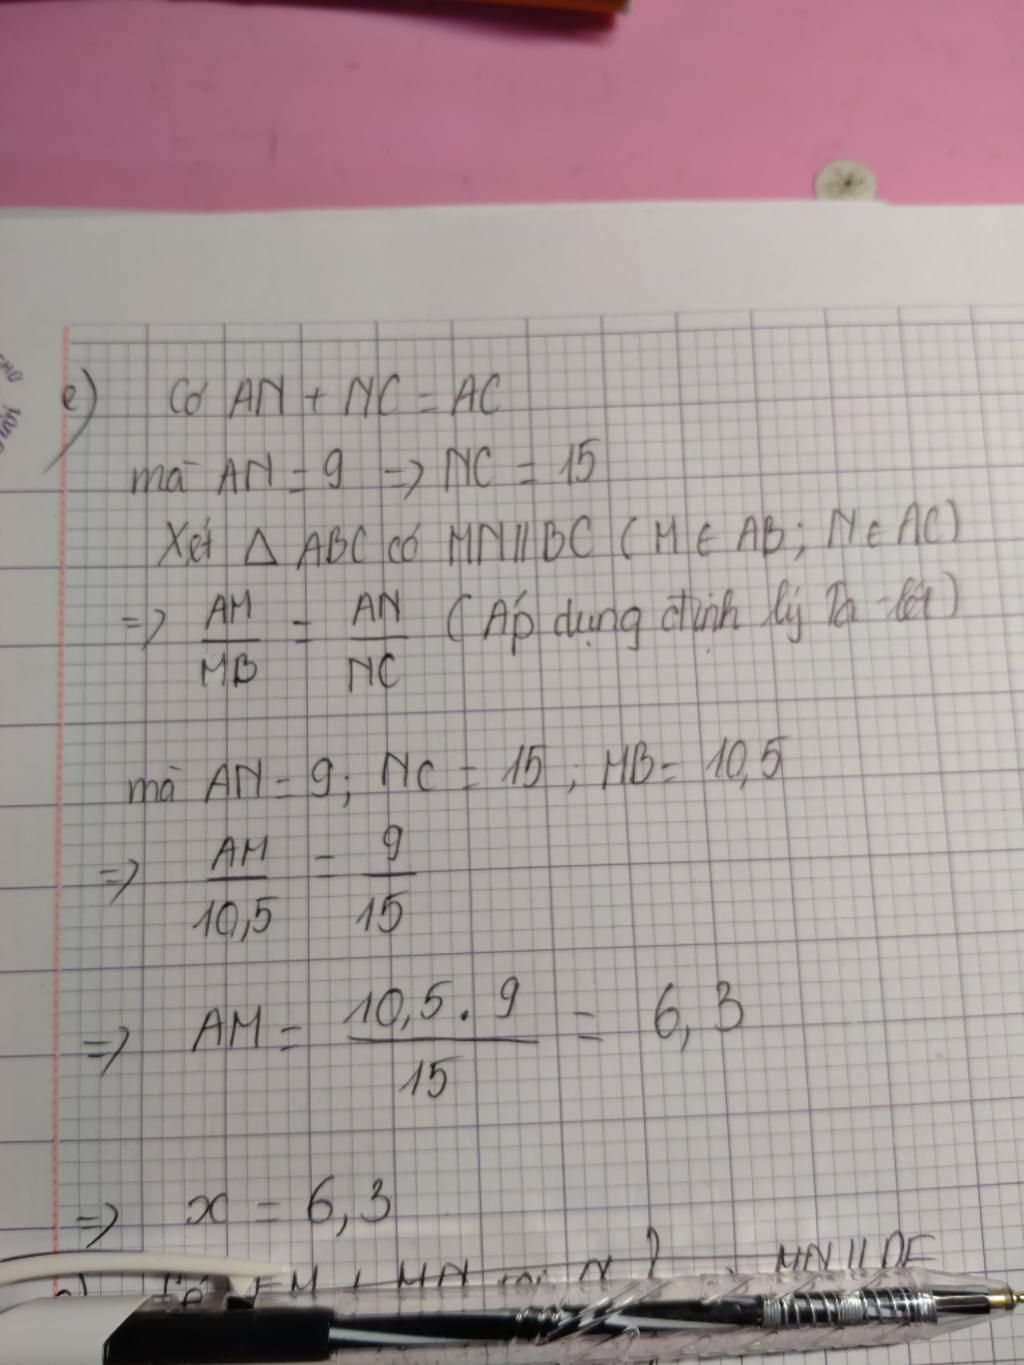 e) Có AN + NC = AC
mà AN = 9 => NC = 15
Xét △ ABC có MN // BC ( M ∈ AB; N ∈ AC)
=> AM/MB = AN/NC ( Áp dụng định lý Ta-lét)
mà AN = 9; NC = 15 ; MB = 10,5
=> AM/10,5 = 9/15
=> AM = 10,5 . 9/15 = 6,3
=> x = 6,3
MN // DE